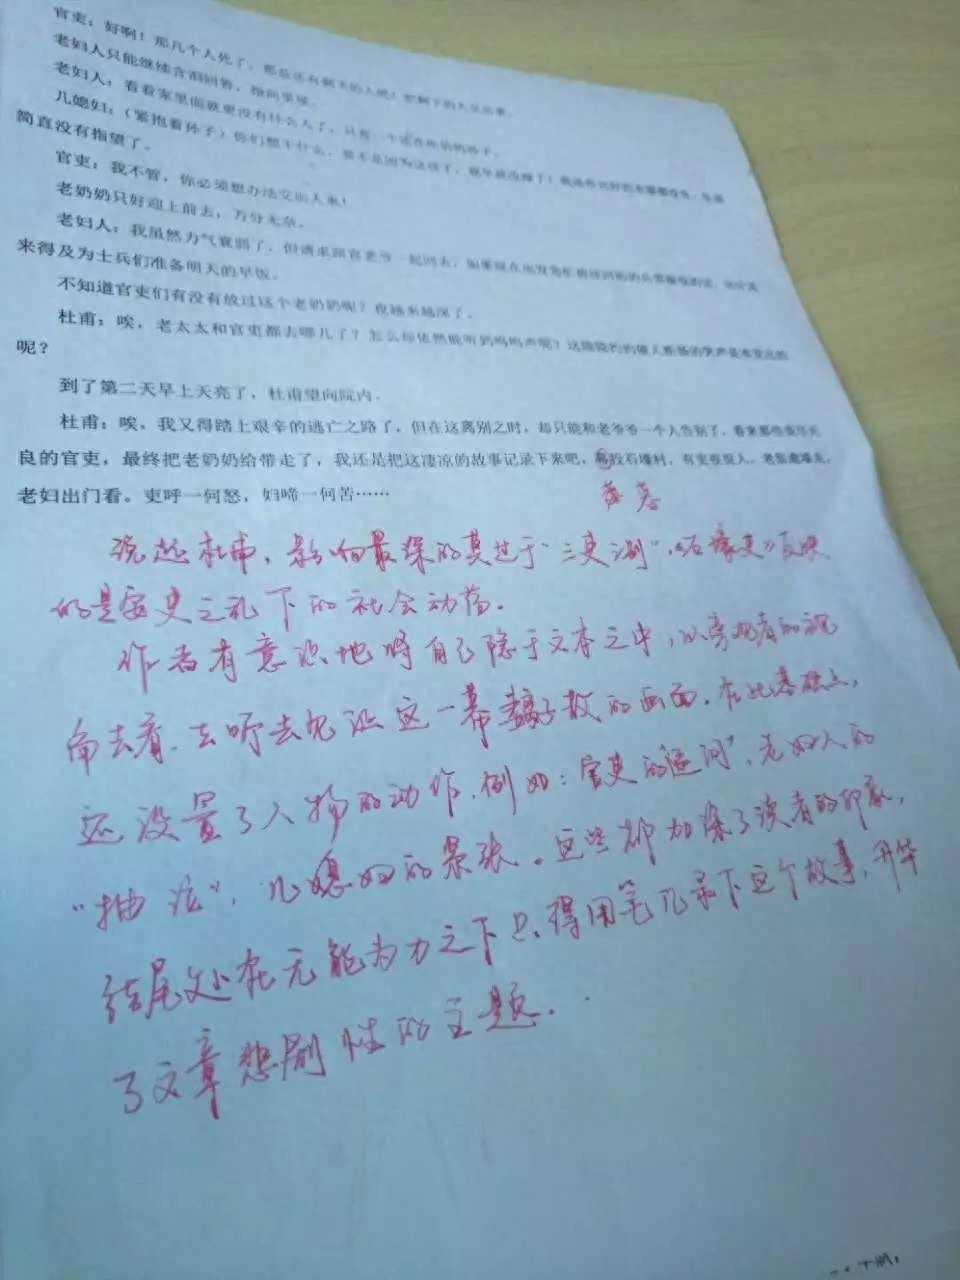 官吏：好啊！那几个人死了，那总还有剩下的人吧！把剩下的人交出来。
老妇人只能继续含泪回答，指向里屋。
老妇人：看看家里面就更没有什么人了，只有一个还在吃奶的孙子。
儿媳妇：（紧抱着孙子）你们想干什么，要不是因为这孩子，我早就改嫁了！
简直没有指望了。
官吏：我不管，你必须想办法交出人来！
老奶奶只好迎上前去，万分无奈。
老妇人：我虽然力气衰弱了，但请求跟官老爷一起回去，如果现在出发
来得及为士兵们准备明天的早饭。
不知道官吏们有没有放过这个老奶奶呢？夜越来越深了。
杜甫：唉，老太太和官吏都去哪儿了？怎么却依然能听到呜呜声呢？这隐隐约约
呢？
到了第二天早上天亮了，杜甫望向院内。
杜甫：唉，我又得踏上艰辛的逃亡之路了，但在这离别之时，却只能和老爷爷一个人告别了，看来那些丧尽天
良的官吏，最终把老奶奶给带走了，我还是把这凄凉的故事记录下来吧，投石壕村，有吏夜捉人，老翁逾墙走，
老妇出门看。吏呼一何怒，妇啼一何苦……
暮
说起杜甫，影响最深的莫过于“三吏三别”，《石壕吏》反映
的是安史之乱下的社会动荡。
作者有意识地将自己隐于文本之中，以旁观者的视
角去看、去听去见证这一幕离散的画面。在此基础上，
还设置了人物的动作，例如：官吏的“逼问”，老妇人的
“抽泣”，儿媳妇的紧张。这些都加深了读者的印象，
结尾处在无能为力之下只得用笔记录下这个故事，升华
了文章悲剧性的主题.